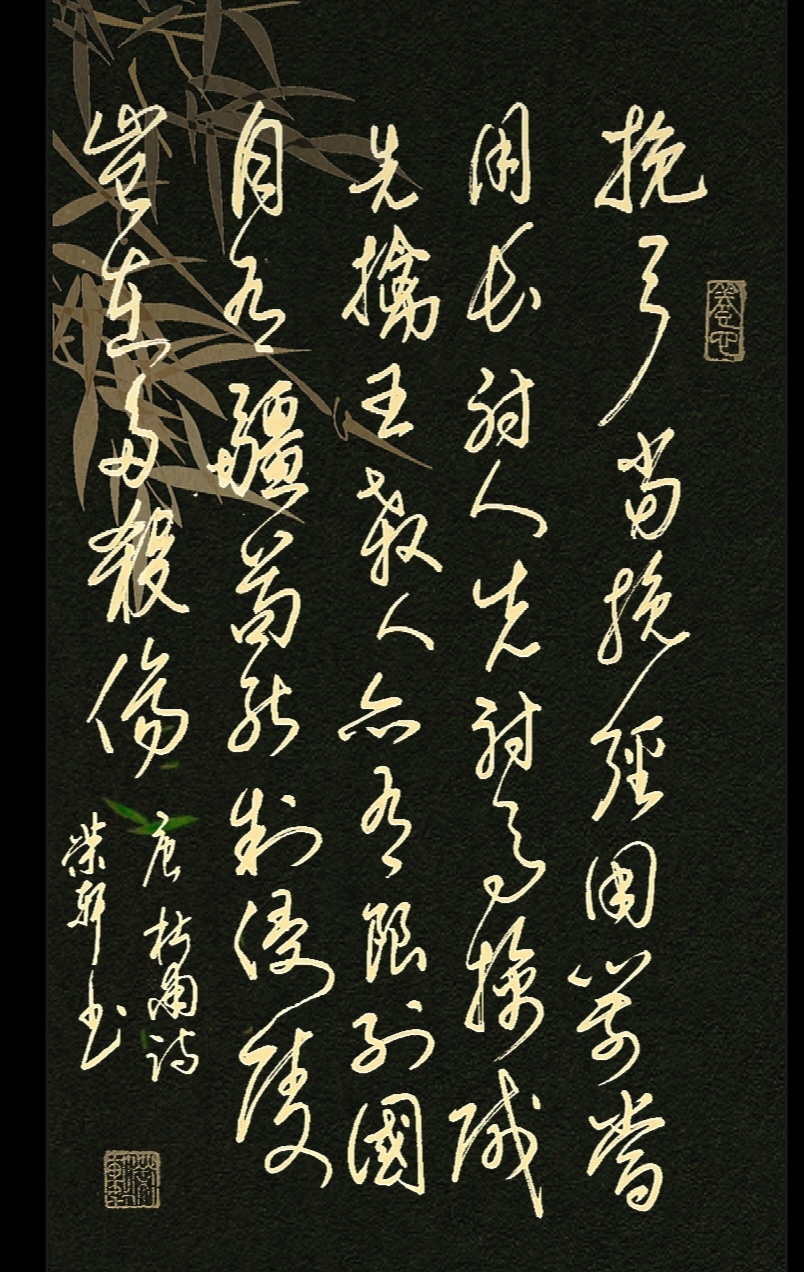 挽弓當挽强用箭當
用長射人先射馬擒賊
先擒王殺人亦有限列國
自有疆苟能制侵陵
豈在多殺傷
唐杜甫詩
榮軒书